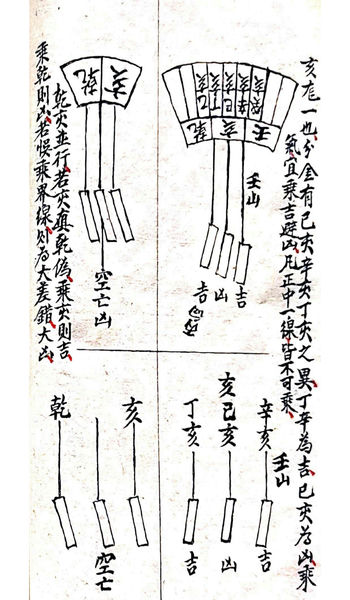 亥龙一也分金有己亥辛亥丁亥之異丁辛為吉己亥為凶乘
氣宜乘吉避凶凡正中一線皆不可乘
癸亥
辛亥
己亥
丁亥
乙亥
壬
亥
乾
壬山
吉
凶
吉
辛亥
壬山
吉
亥己亥
凶
丁亥
吉
亥
乾
空亡凶
亥
空亡
乾
乾亥並行若亥真乾偽乘亥則吉
乘乾則凶若悮乘界線則為大差錯大凶